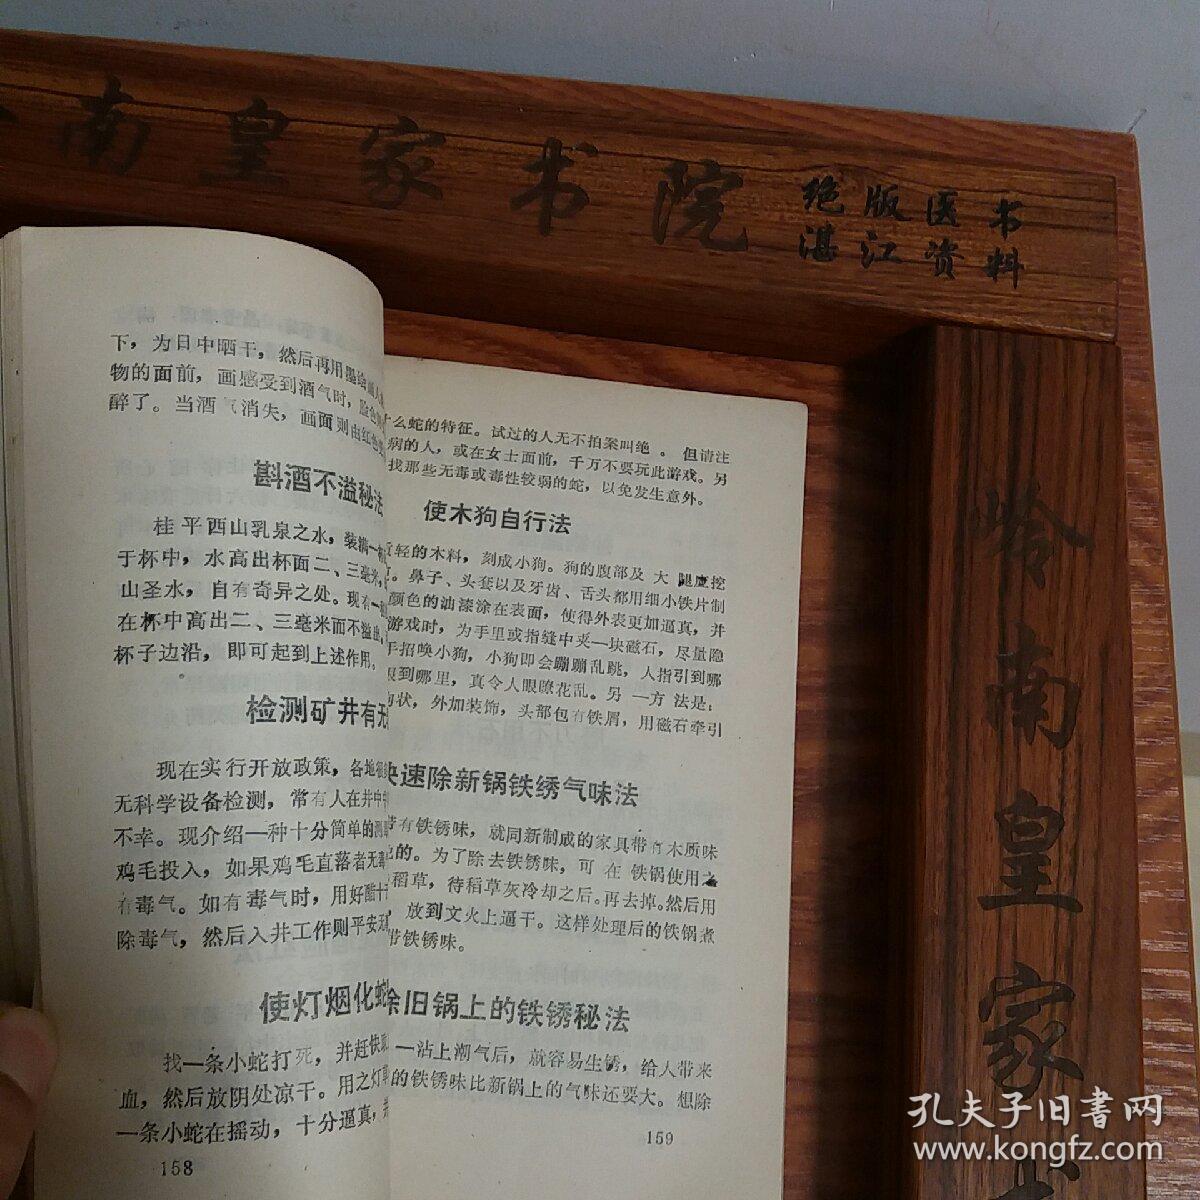 南皇家书院
绝版医书
湛江资料
岭南皇家书
下，为日中晒干，然后再用墨
物的面前，画感受到酒气时，脸色
醉了。当酒气消失，画面则由红色
斟酒不溢秘法
桂平西山乳泉之水，装满一
于杯中，水高出杯面二、三毫米，
山圣水，自有奇异之处。现有一
在杯中高出二、三毫米而不溢出，
杯子边沿，即可起到上述作用。
检测矿井有无
现在实行开放政策，各地很多
无科学设备检测，常有人在井中
不幸。现介绍一种十分简单的测
鸡毛投入，如果鸡毛直落者无毒
有毒气。如有毒气时，用好醋十
除毒气，然后入井工作则平安无
使灯烟化蛇
找一条小蛇打死，并赶快取
血，然后放阴处凉干。用之灯草
一条小蛇在摇动，十分逼真，
158
什么蛇的特征。试过的人无不拍案叫绝。但请注
病的人，或在女士面前，千万不要玩此游戏。另
找那些无毒或毒性较弱的蛇，以免发生意外。
使木狗自行法
轻的木料，刻成小狗。狗的腹部及大腿应挖
。鼻子、头套以及牙齿、舌头都用细小铁片制
颜色的油漆涂在表面，使得外表更加逼真，并
游戏时，为手里或指缝中夹一块磁石，尽量隐
手招唤小狗，小狗即会蹦蹦乱跳，人指引到哪
跟到哪里，真令人眼瞭花乱。另一方法是：
状，外加装饰，头部包有铁屑，用磁石牵引
快速除新锅铁绣气味法
带有铁锈味，就同新制成的家具带有木质味
的。为了除去铁锈味，可在铁锅使用之
稻草，待稻草灰冷却之后。再去掉。然后用
，放到文火上逼干。这样处理后的铁锅煮
带铁锈味。
除旧锅上的铁锈秘法
一沾上潮气后，就容易生锈，给人带来
的铁锈味比新锅上的气味还要大。想除
159
孔夫子旧书网
www.kongfz.com